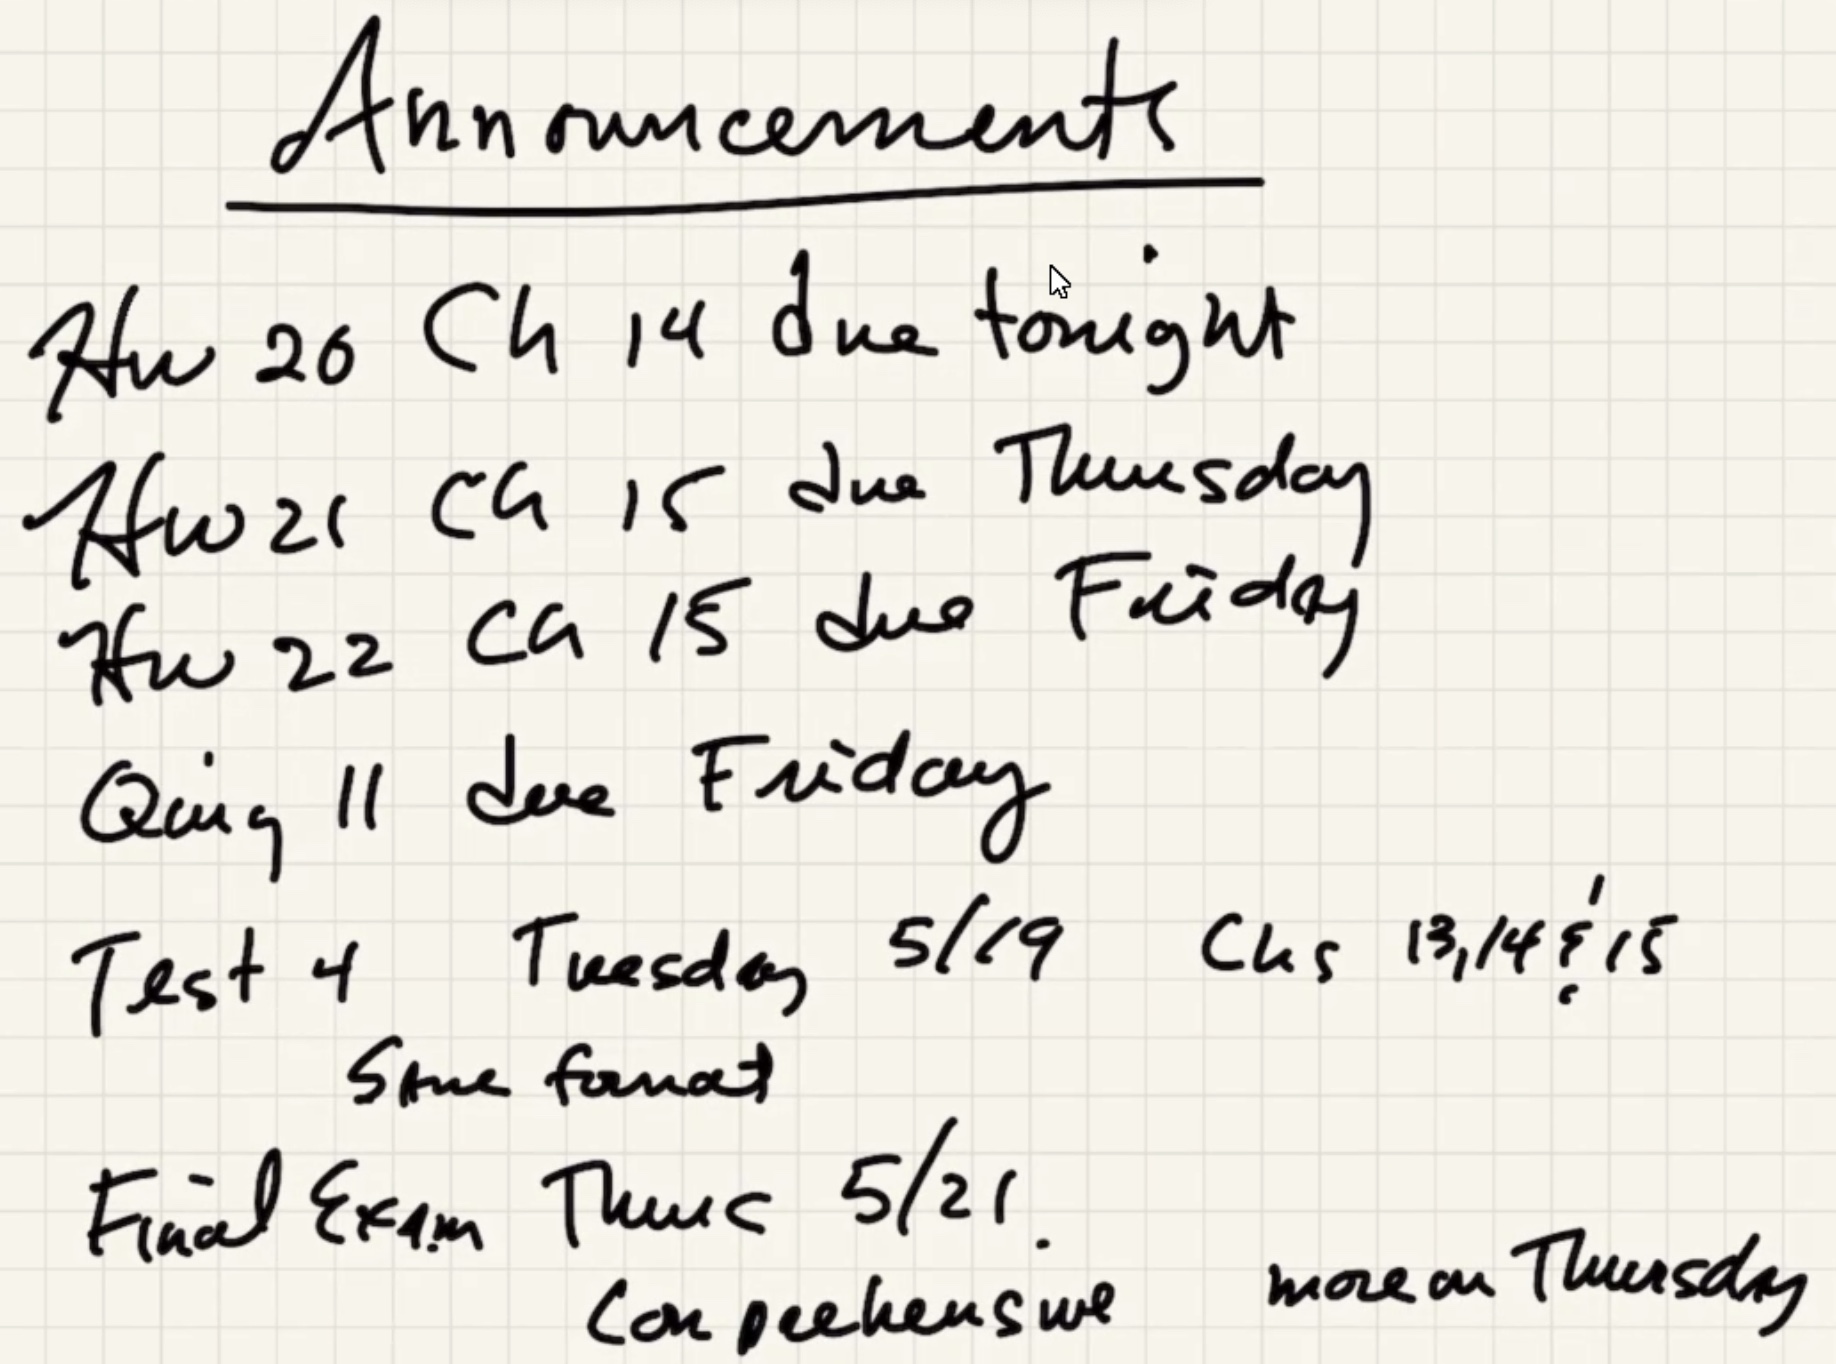 Announcements
Hw 20 Ch 14 due tonight
Hw 21 Ch 15 due Thursday
Hw 22 Ch 15 due Friday
Quiz 11 due Friday
Test 4 Tuesday 5/19 Chs 13, 14 & 15
Same format
Final Exam Thurs 5/21.
Comprehensive more on Thursday